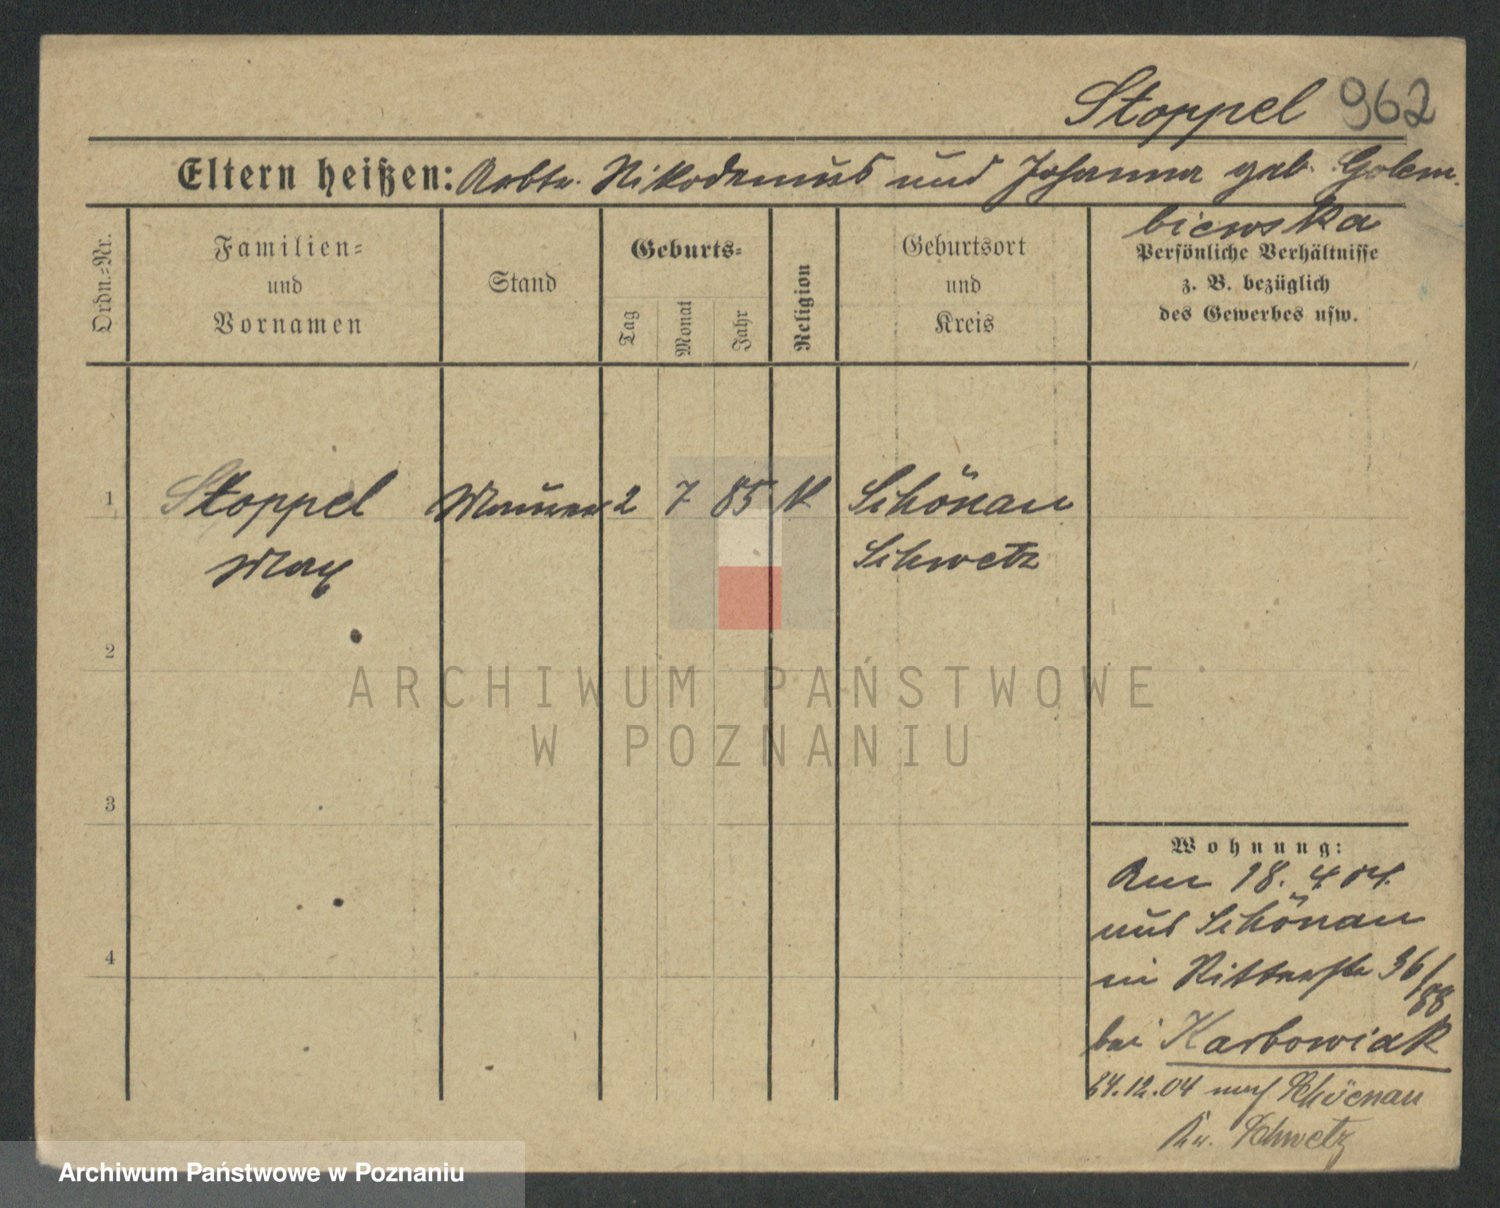 Stoppel 962
Eltern heißen: Arbtr. Nikodemus und Johanna geb. Golem-
biewska
Ordn.-Nr.
Familien- und Vornamen
Stand
Geburts-
Tag
Monat
Jahr
Religion
Geburtsort und Kreis
Persönliche Verhältnisse
z. B. bezüglich
des Gewerbes usw.
1 Stoppel Maurer 2 7 85 K Schönau
Max Schwetz
2
3
4
Wohnung:
Am 18. 4 04.
aus Schönau
in Ritterstr 36/38
bei Karbowiak
24.12.04 nach Schoenau
Kr. Schwetz
ARCHIWUM PAŃSTWOWE
W POZNANIU
Archiwum Państwowe w Poznaniu